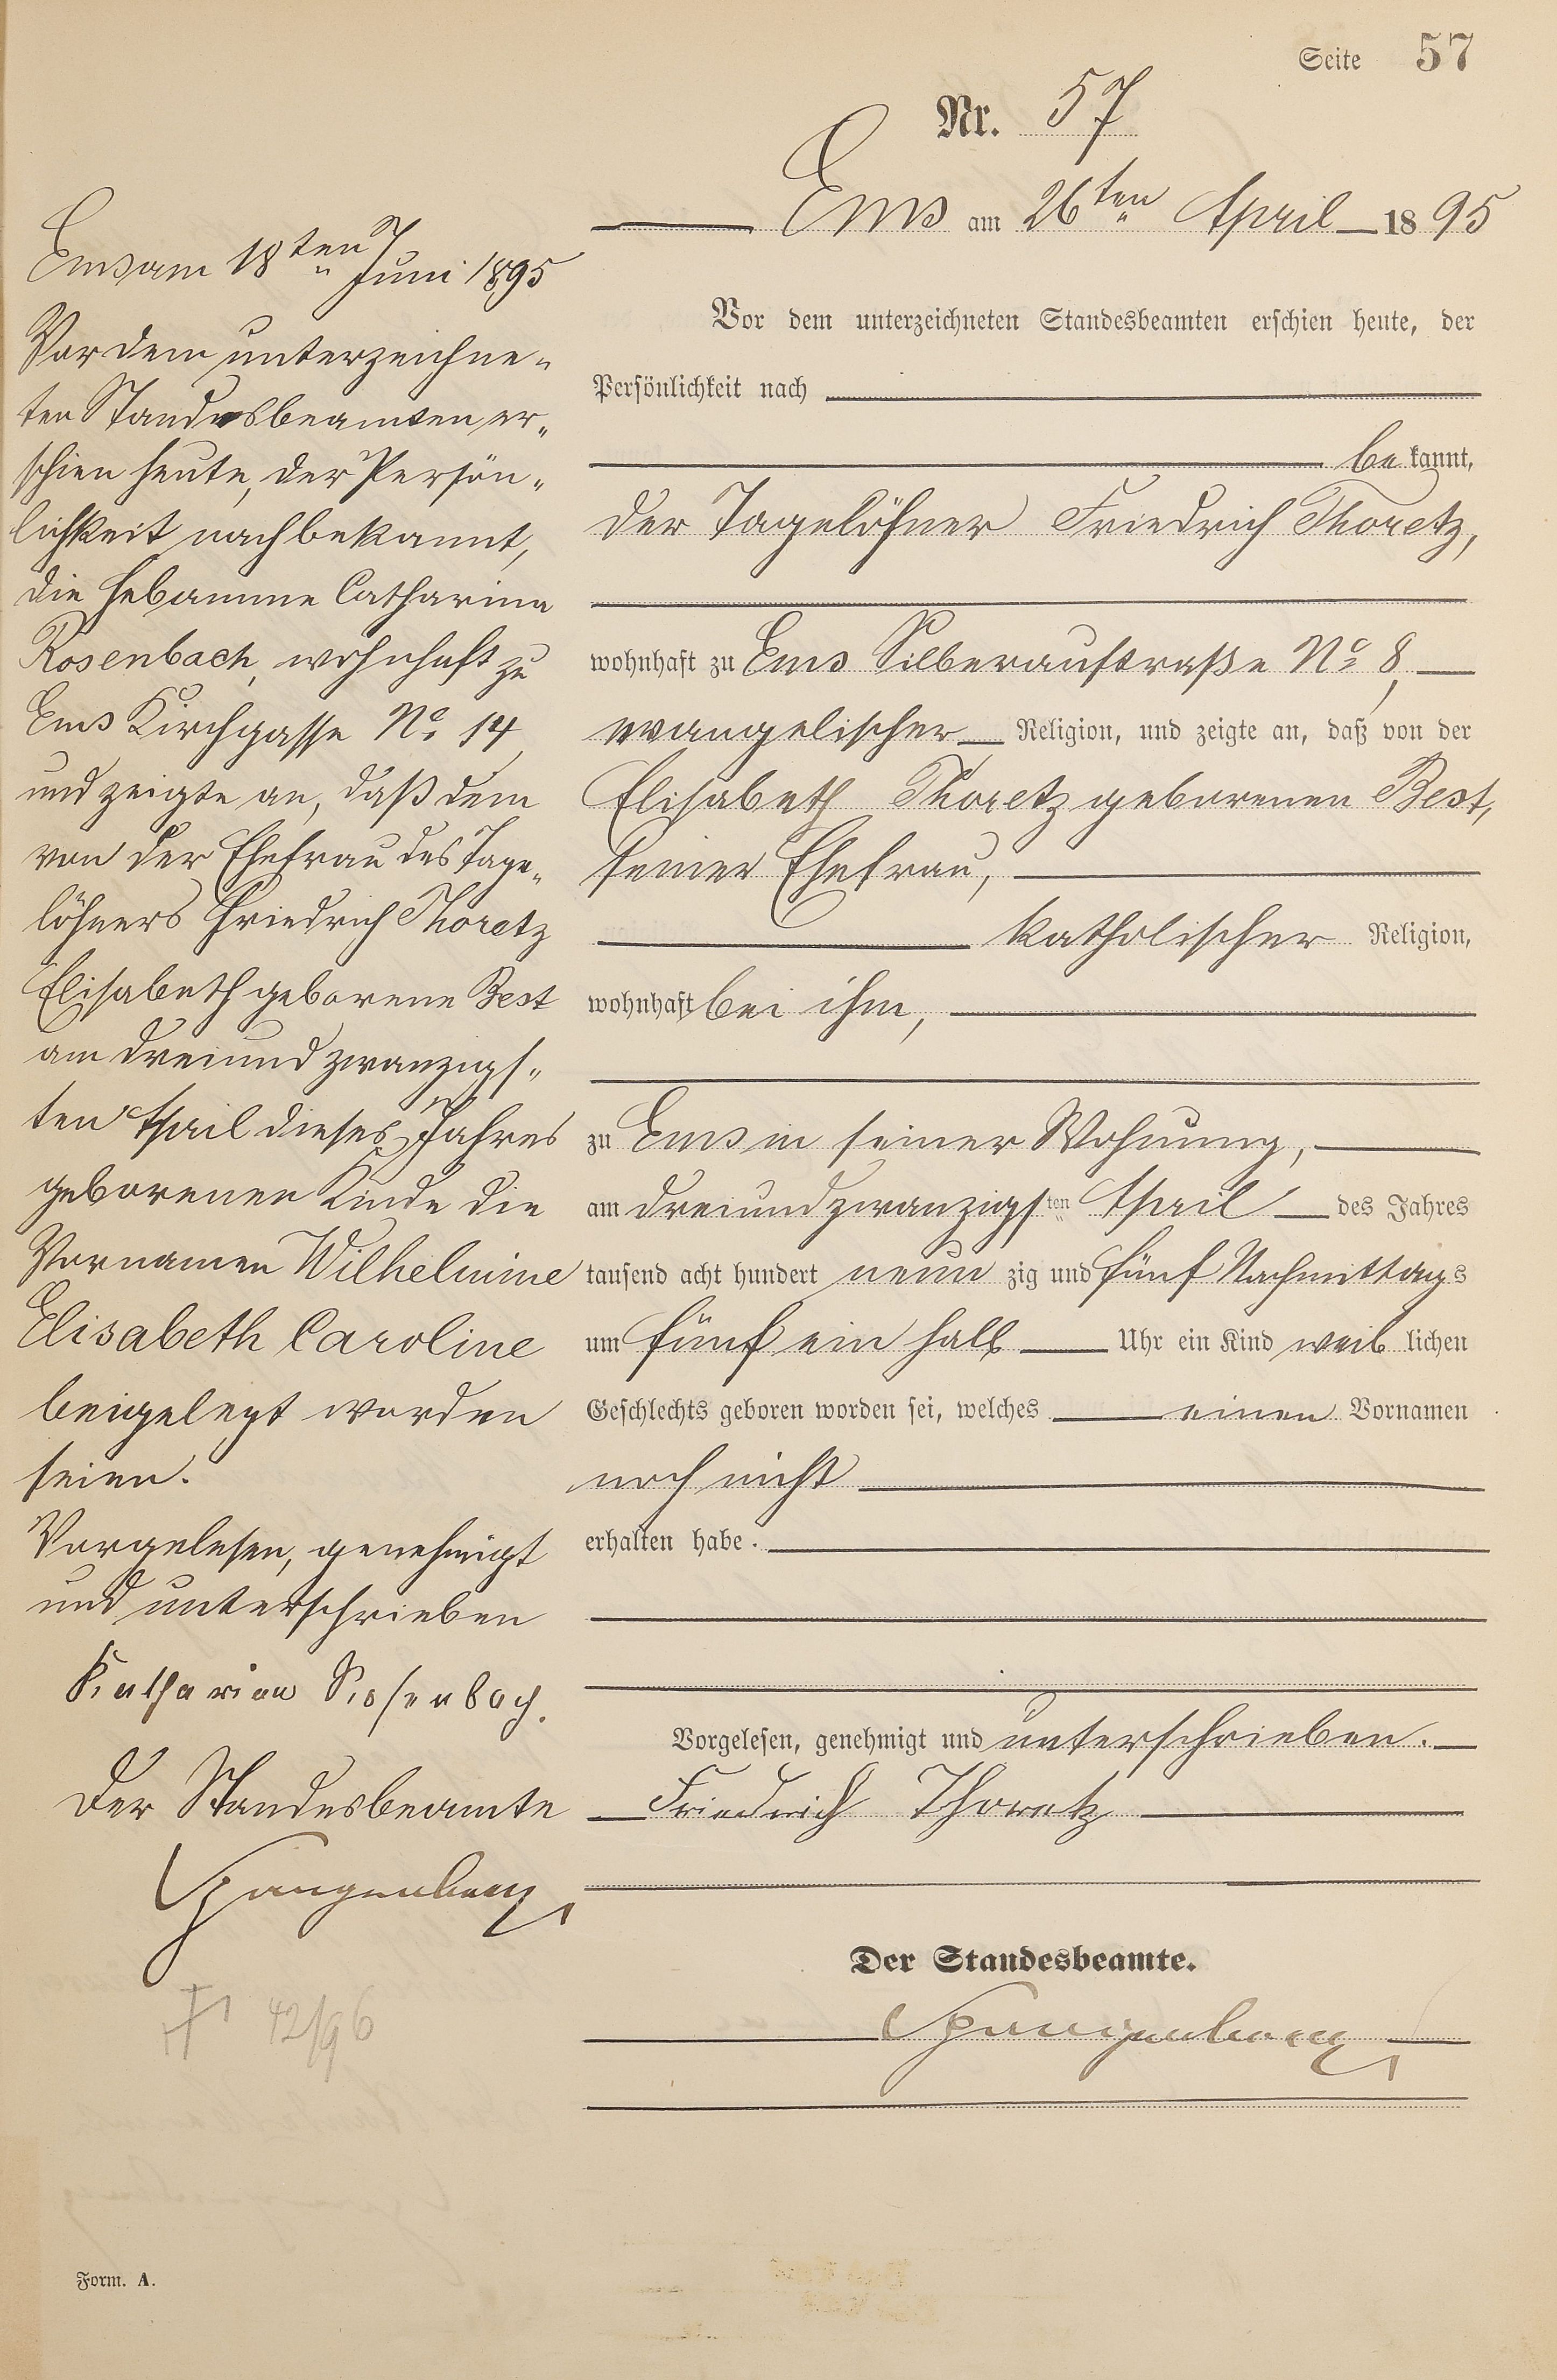 Seite 57
Nr. 57
Ems am 26ten April 1895
Vor dem unterzeichneten Standesbeamten erschien heute, der
Persönlichkeit nach
bekannt,
der Tagelöhner Friedrich Thoretz,
wohnhaft zu Ems Silberaustraße No 8,
evangelischer Religion, und zeigte an, daß von der
Elisabeth Thoretz geborenen Best,
seiner Ehefrau,
katholischer Religion,
wohnhaft bei ihm,
zu Ems in seiner Wohnung,
am dreiundzwanzigsten April des Jahres
tausend acht hundert neunzig und fünf Nachmittags
um fünf ein halb Uhr ein Kind weiblichen
Geschlechts geboren worden sei, welches einen Vornamen
noch nicht
erhalten habe.
Vorgelesen, genehmigt und unterschrieben.
Friedrich Thoretz
Der Standesbeamte.
Spangenberg
Ems am 18ten Juni 1895
Vor dem unterzeichne-
ten Standesbeamten er-
schien heute, der Persön-
lichkeit nach bekannt,
die Hebamme Catharina
Rosenbach, wohnhaft zu
Ems Kirchgasse No 14
und zeigte an, daß dem
von der Ehefrau des Tage-
löhners Friedrich Thoretz
Elisabeth geborene Best
am dreiundzwanzigs-
ten April dieses Jahres
geborenen Kinde die
Vornamen Wilhelmine
Elisabeth Caroline
beigelegt worden
seien.
Vorgelesen, genehmigt
und unterschrieben
Katharina Rosenbach.
Der Standesbeamte
Spangenberg
† 42/96
Form. A.